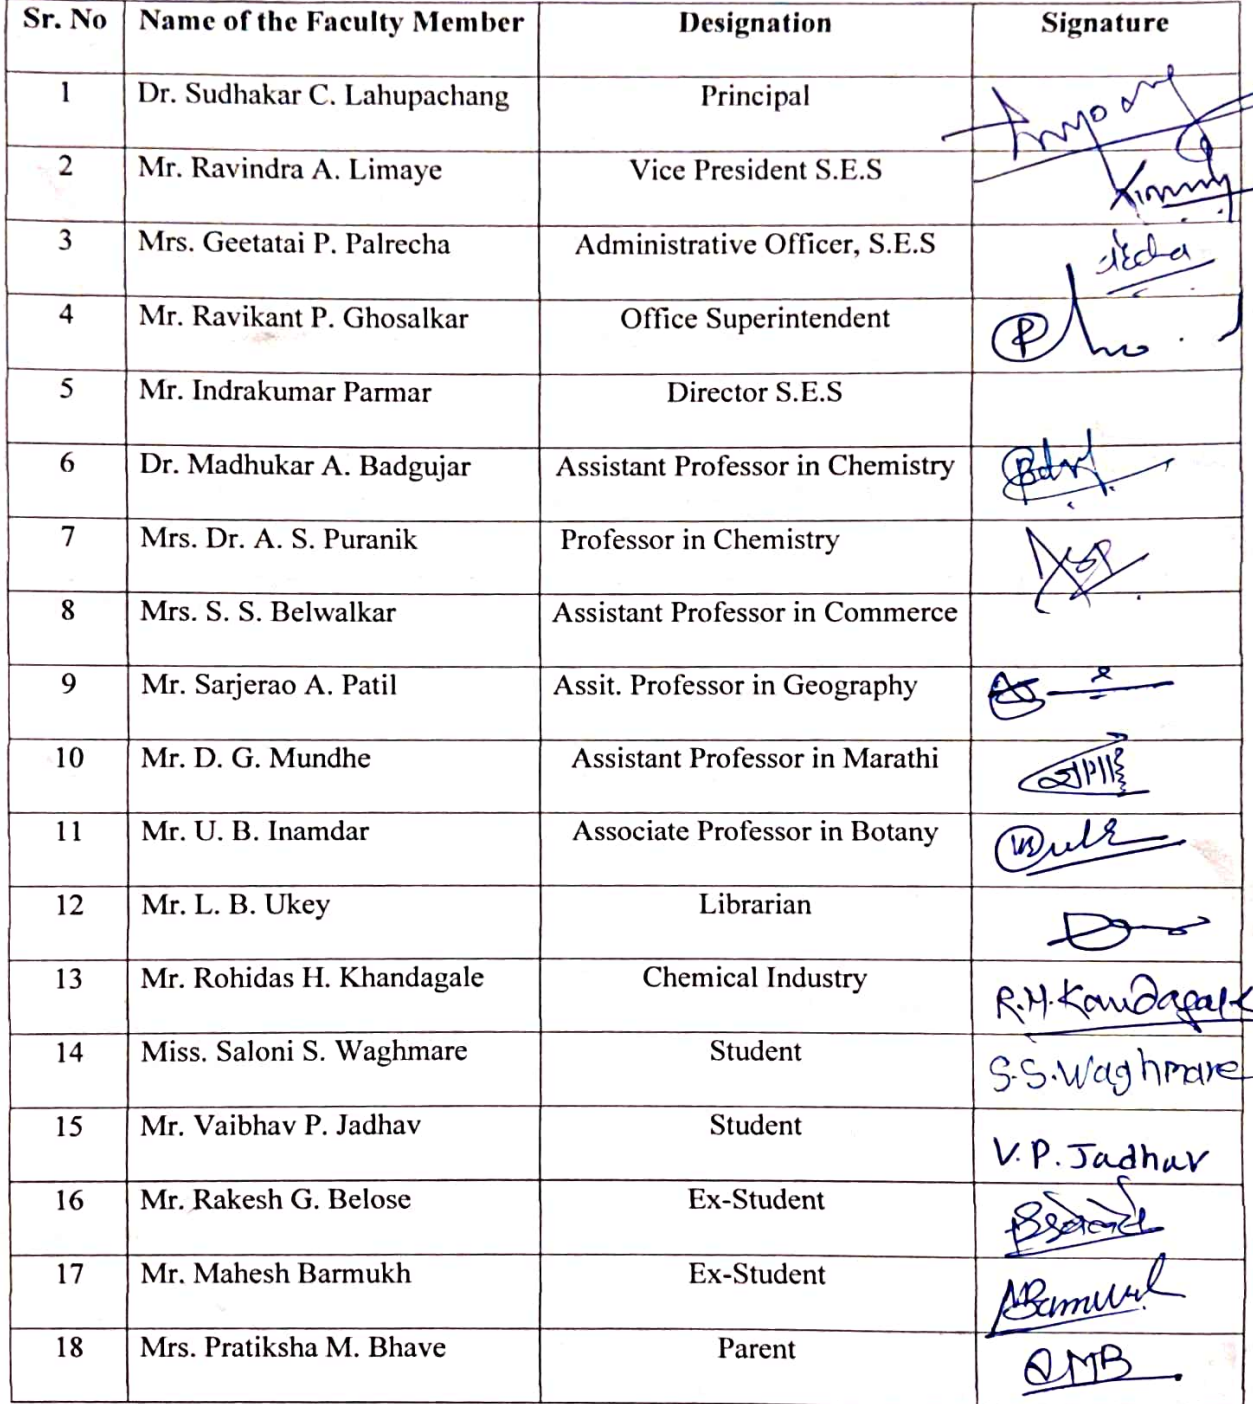 Sr. No Name of the Faculty Member Designation Signature
1 Dr. Sudhakar C. Lahupachang Principal
2 Mr. Ravindra A. Limaye Vice President S.E.S
3 Mrs. Geetatai P. Palrecha Administrative Officer, S.E.S
4 Mr. Ravikant P. Ghosalkar Office Superintendent
5 Mr. Indrakumar Parmar Director S.E.S
6 Dr. Madhukar A. Badgujar Assistant Professor in Chemistry
7 Mrs. Dr. A. S. Puranik Professor in Chemistry
8 Mrs. S. S. Belwalkar Assistant Professor in Commerce
9 Mr. Sarjerao A. Patil Assit. Professor in Geography
10 Mr. D. G. Mundhe Assistant Professor in Marathi
11 Mr. U. B. Inamdar Associate Professor in Botany
12 Mr. L. B. Ukey Librarian
13 Mr. Rohidas H. Khandagale Chemical Industry R.H.Kandagale
14 Miss. Saloni S. Waghmare Student S.S.Waghmare
15 Mr. Vaibhav P. Jadhav Student V.P.Jadhav
16 Mr. Rakesh G. Belose Ex-Student
17 Mr. Mahesh Barmukh Ex-Student
18 Mrs. Pratiksha M. Bhave Parent